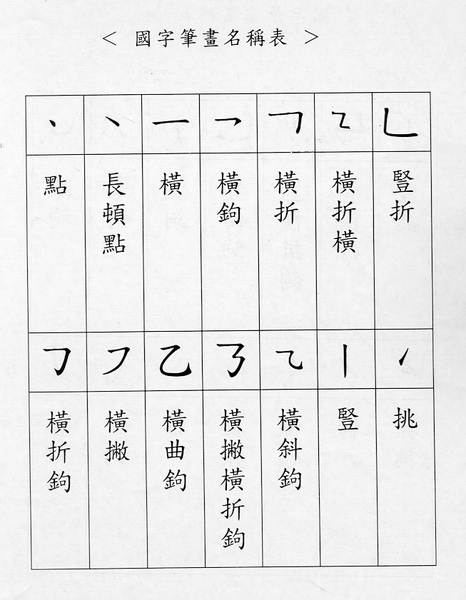 ＜ 國字筆畫名稱表 ＞
丶 ㇔ 一 ㇖ ㇕ ㇍ ㇗
點
長頓點
橫
橫鉤
橫折
橫折橫
豎折
㇆ ㇇ 乙 ㇌ ⺄ 丨 ㇀
橫折鉤
橫撇
橫曲鉤
橫撇橫折鉤
橫斜鉤
豎
挑